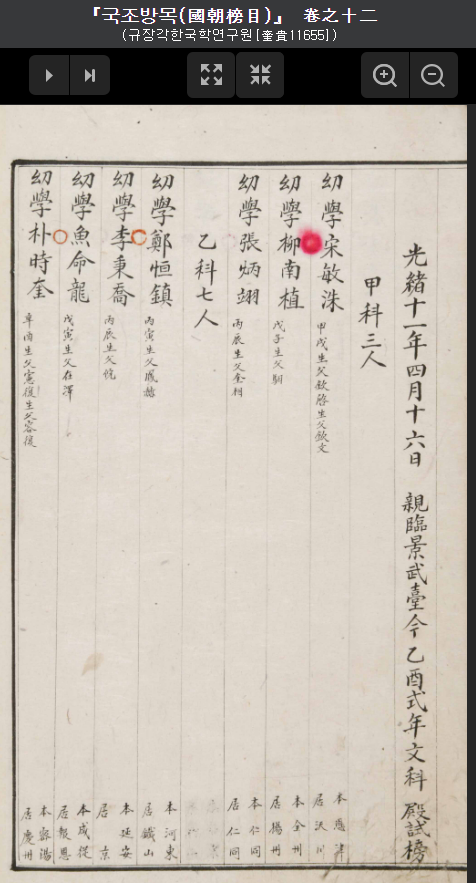 『국조방목(國朝榜目)』 卷之十二
(규장각한국학연구원[奎貴11655])
光緖十一年四月十六日 親臨景武臺今乙酉式年文科殿試榜
甲科三人
幼學宋敏洙 甲戌生父欽啓生父欽文 本恩津 居沃川
幼學柳南植 戊子生父 本全州 居楊州
幼學張炳翊 丙辰生父 本仁同 居仁同
乙科七人
幼學鄭恒鎮 丙寅生父 本河東 居鐵山
幼學李秉喬 丙辰生父 本延安 居京
幼學魚命龍 戊寅生父在渾 本咸從 居報恩
幼學朴時奎 辛酉生父憲復生父容復 本密陽 居慶州